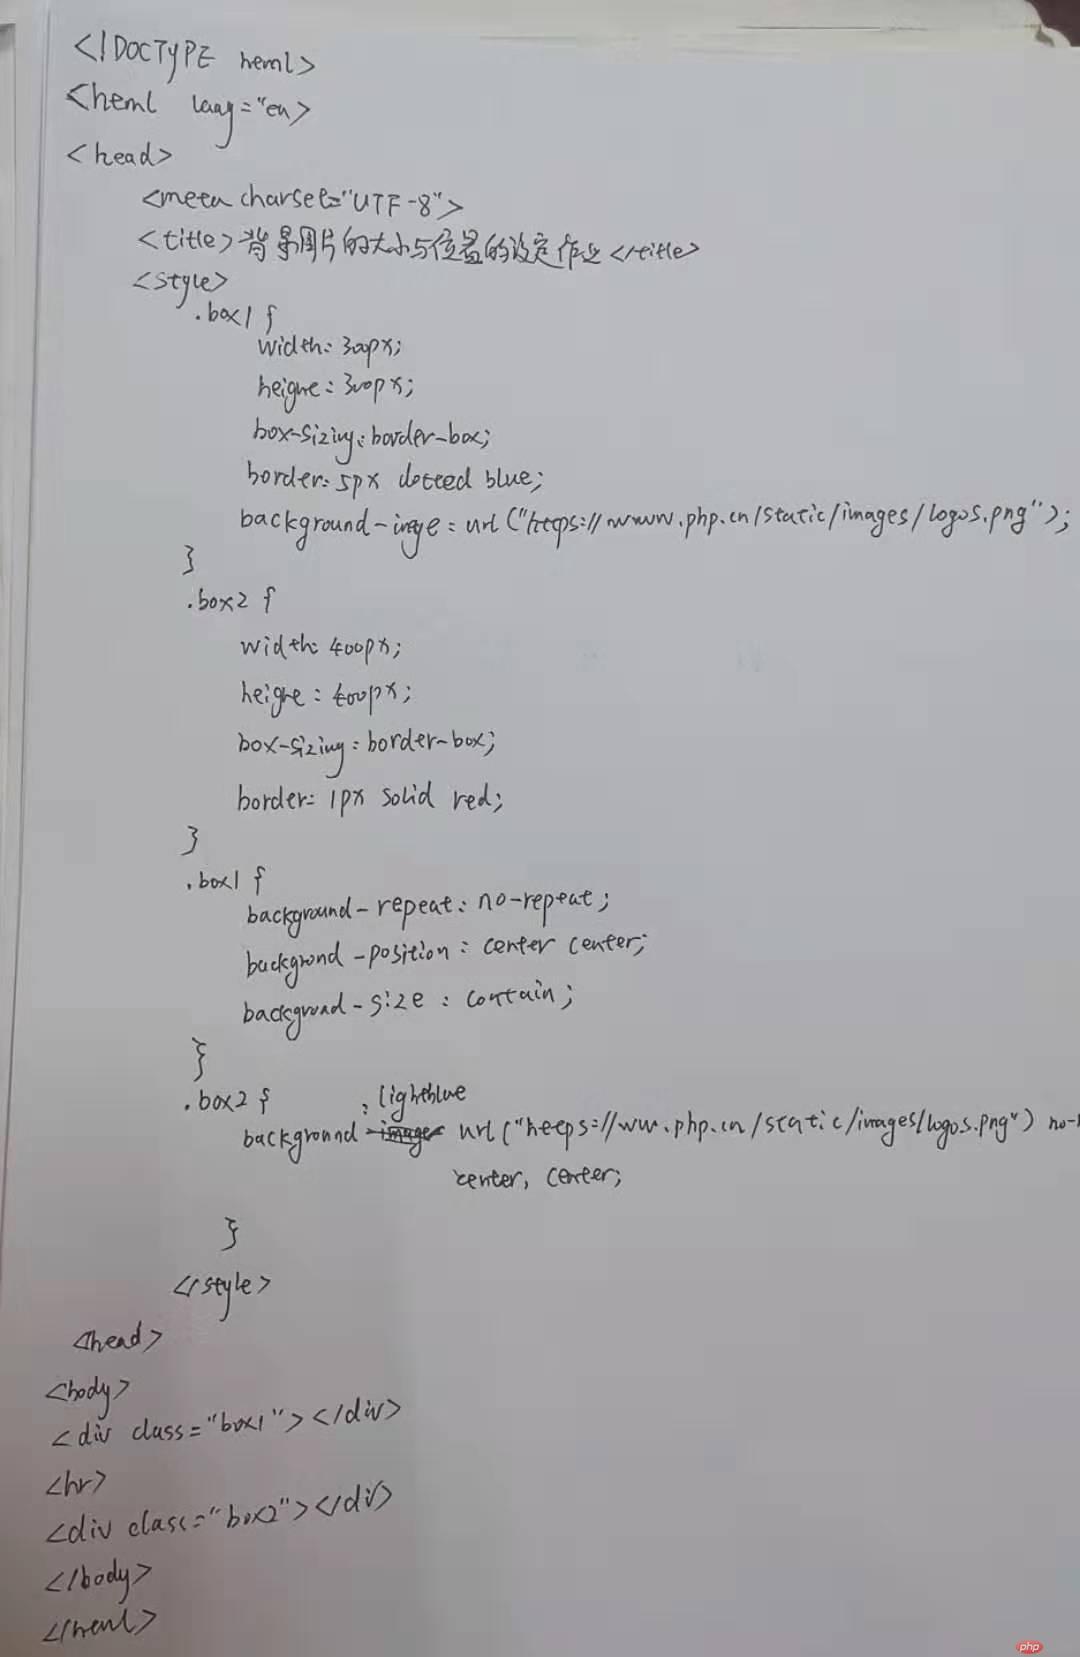 <!DOCTYPE html>
<html lang="en>
<head>
<meta charset="UTF-8">
<title>背景图片的大小与位置的设定作业</title>
<style>
.box1 {
width: 300px;
height: 300px;
box-sizing: border-box;
border: 5px dotted blue;
background-image: url("https://www.php.cn/static/images/logos.png");
}
.box2 {
width: 400px;
height: 400px;
box-sizing: border-box;
border: 1px solid red;
}
.box1 {
background-repeat: no-repeat;
backgrond-position: center center;
background-size: contain;
}
.box2 {
: lightblue
background url("https://ww.php.cn/static/images/logos.png") no-
center, center;
}
</style>
<head>
<body>
<div class="box1"></div>
<hr>
<div class="box2"></div>
</body>
</html>
php